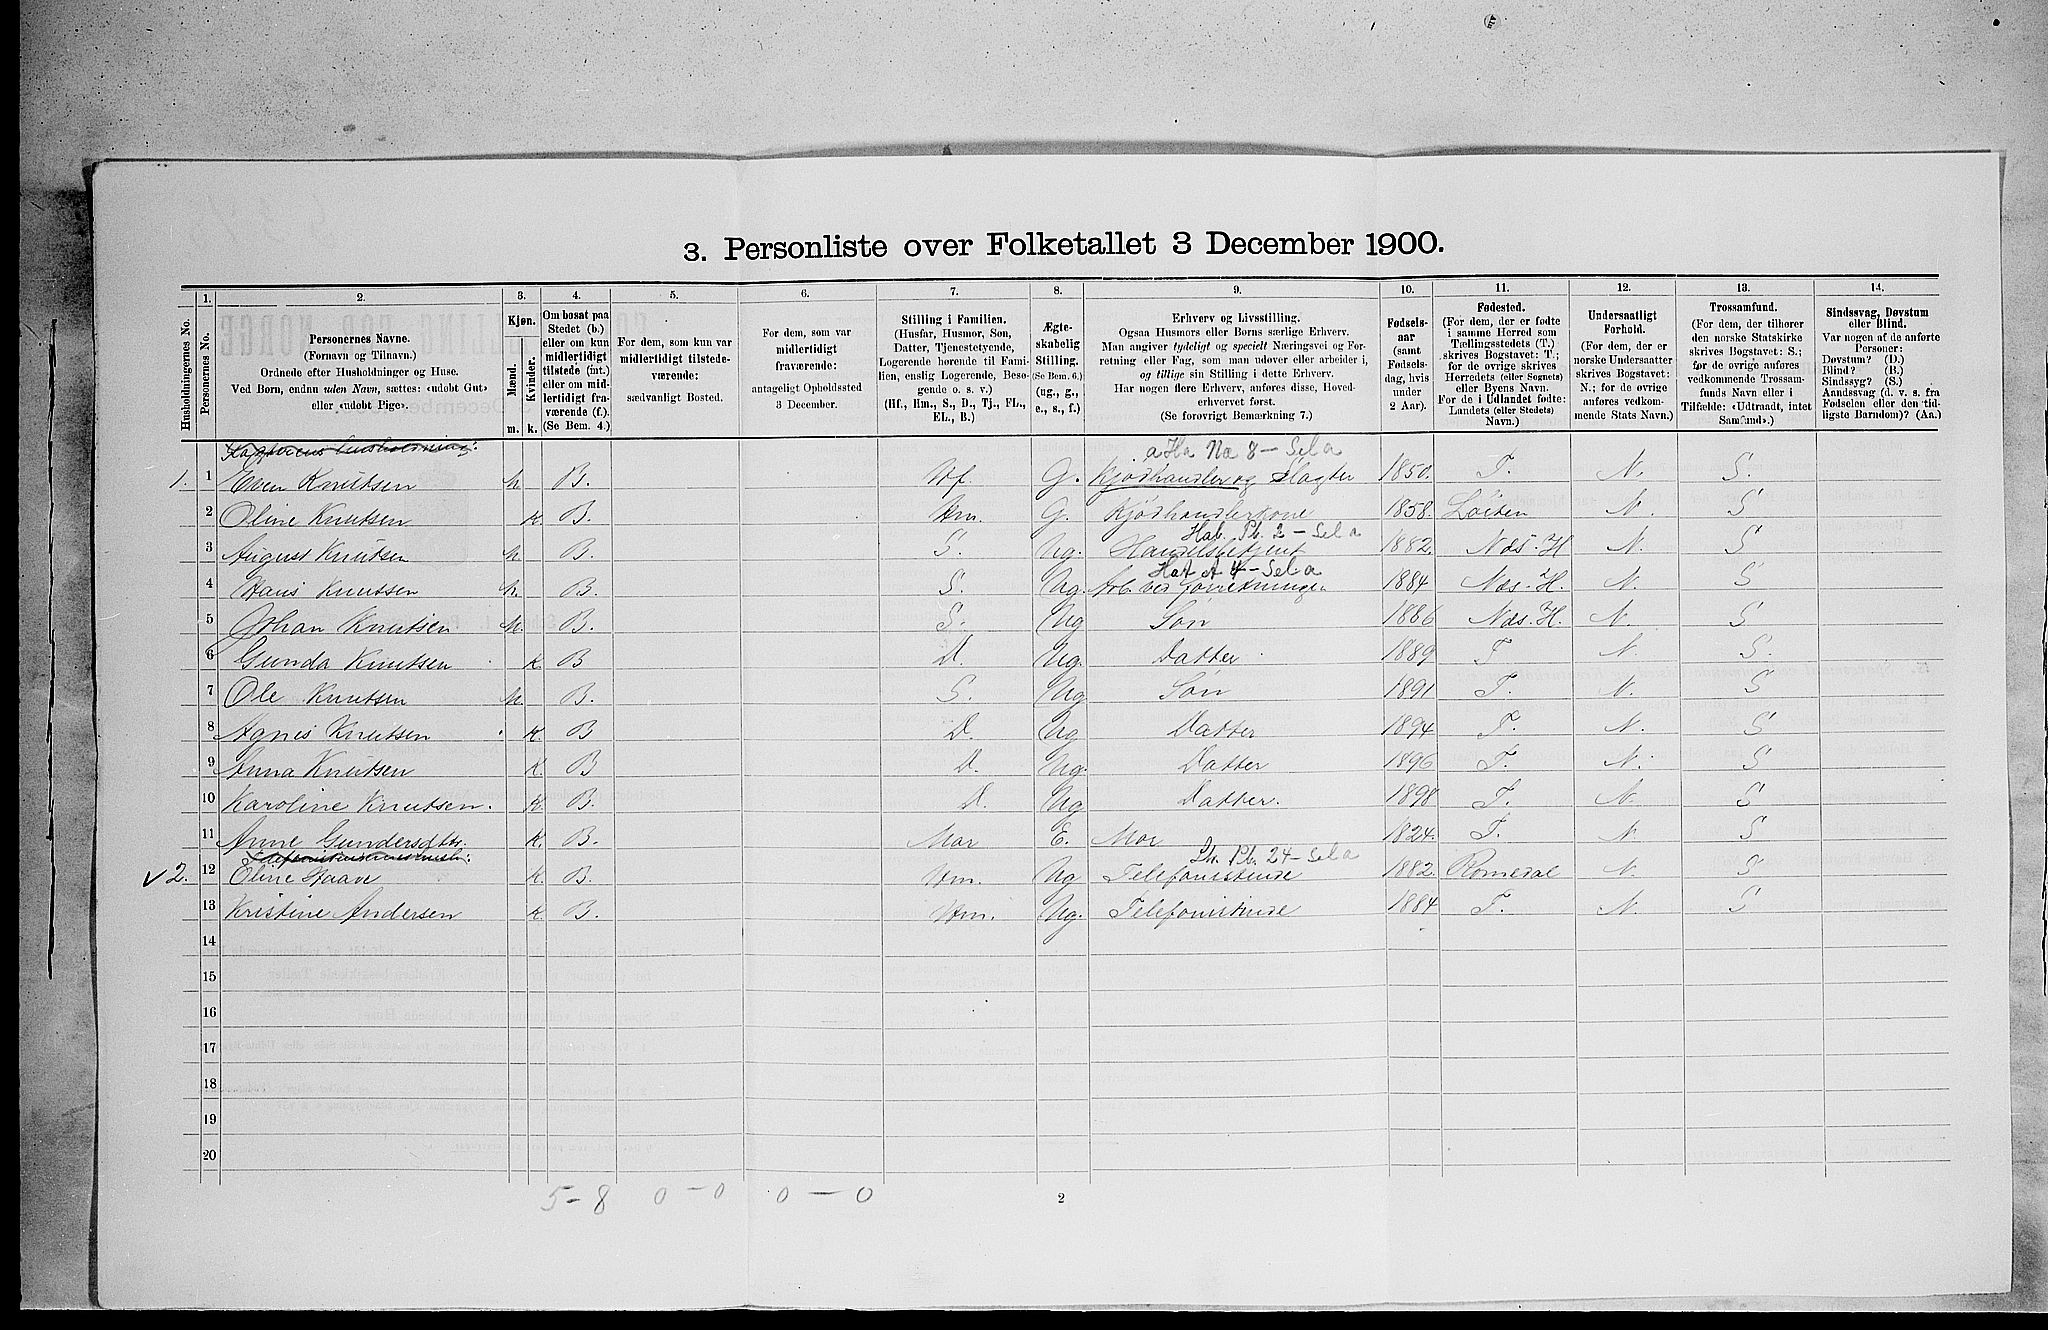 3. Personliste over Folketallet 3 December 1900.
Husholdningernes No.
1.
Personernes No.
2.
Personernes Navne.
(Fornavn og Tilnavn.)
Ordnede efter Husholdninger og Huse.
Ved Børn, endnu uden Navn, sættes: «udobt Gut»
eller «udobt Pige».
3.
Kjøn.
Mænd.
Kvinder.
m. k.
4.
Om bosat paa
Stedet (b.)
eller om kun
midlertidigt
tilstede (mt.)
eller om mid-
lertidigt fra-
værende (f.).
(Se Bem. 4.)
5.
For dem, som kun var
midlertidigt tilstede-
værende:
sædvanligt Bosted.
6.
For dem, som var
midlertidigt
fraværende:
antageligt Opholdssted
3 December.
7.
Stilling i Familien.
(Husfar, Husmor, Søn,
Datter, Tjenestetyende,
Logerende hørende til Fami-
lien, enslig Logerende, Besø-
gende o. s. v.)
(Hf., Hm., S., D., Tj., FL.,
EL., B.)
8.
Ægte-
skabelig
Stilling.
(Se Bem. 6.)
(ug., g.,
e., s., f.)
9.
Erhverv og Livsstilling.
Ogsaa Husmors eller Børns særlige Erhverv.
Man angiver tydeligt og specielt Næringsvei og For-
retning eller Fag, som man udøver eller arbeider i,
og tillige sin Stilling i dette Erhverv.
Har nogen flere Erhverv, anføres disse, Hoved-
erhvervet først.
(Se forøvrigt Bemærkning 7.)
10.
Fødsels-
aar
(samt
Fødsels-
dag, hvis
under
2 Aar).
11.
Fødested.
(For dem, der er fødte
i samme Herred som
Tællingsstedets (T.)
skrives Bogstavet: T.;
for de øvrige skrives
Herredets (eller Sognets)
eller Byens Navn.
For de i Udlandet fødte:
Landets (eller Stedets)
Navn.)
12.
Undersaatligt
Forhold.
(For dem, der er
norske Undersaatter
skrives Bogstavet:
N.; for de øvrige
anføres vedkom-
mende Stats Navn.)
13.
Trossamfund.
(For dem, der tilhører
den norske Statskirke
skrives Bogstavet: S.;
for de øvrige anføres
vedkommende Trossam-
funds Navn eller i
Tilfælde: «Udtraadt, intet
Samfund».)
14.
Sindssvag, Døvstum
eller Blind.
Var nogen af de anførte
Personer:
Døvstum? (D.)
Blind? (B.)
Sindssyg? (S.)
Aandssvag (d. v. s. fra
Fødselen eller den tid-
ligste Barndom)? (Aa.)
a Ha Na 8 – Sel a
1. 1 Even Knutsen m. B. Hf. G. Kjødhandler og Slagter 1850. T. N. S.
2 Oline Knutsen K. B. Hm. G. Kjødhandlerkone 1858. Løiten N. S
Hab. Pb. 2 – Sel a
3 August Knutsen m. B. S. Ug. Handelsbetjent 1882 Næs. H N. S
4 – Sel a
4 Hans Knutsen m. B. S. Ug. Arb. ved forretningen 1884 Næs. H. N. S
5 Johan Knutsen M. B. S. Ug Søn 1886 Næs. H. N. S
6 Gunda Knutsen K. B D. Ug. Datter 1889 T N. S.
7 Ole Knutsen M. B. S. Ug Søn 1891 T. N. S
8 Agnes Knutsen K. B D. Ug Datter 1894 T. N. S
9 Anna Knutsen K. B D. Ug. Datter 1896 T. N. S
10 Karoline Knutsen. K. B. D. Ug Datter. 1898 T. N. S
11 Anne Gundersdtr. K. B. Mor E. Mor 1824. T. N. S
Pb. 24 – Sel a
2. 12 Oline Haave K. B. Hm. Ug Telefonistinde 1882. Romedal N. S
13 Kristine Andersen K. B. Hm. Ug. Telefonistinde 1884 T. N. S
14
15
16
17
18
19
20
5 – 8 0 – 0 0 – 0
2